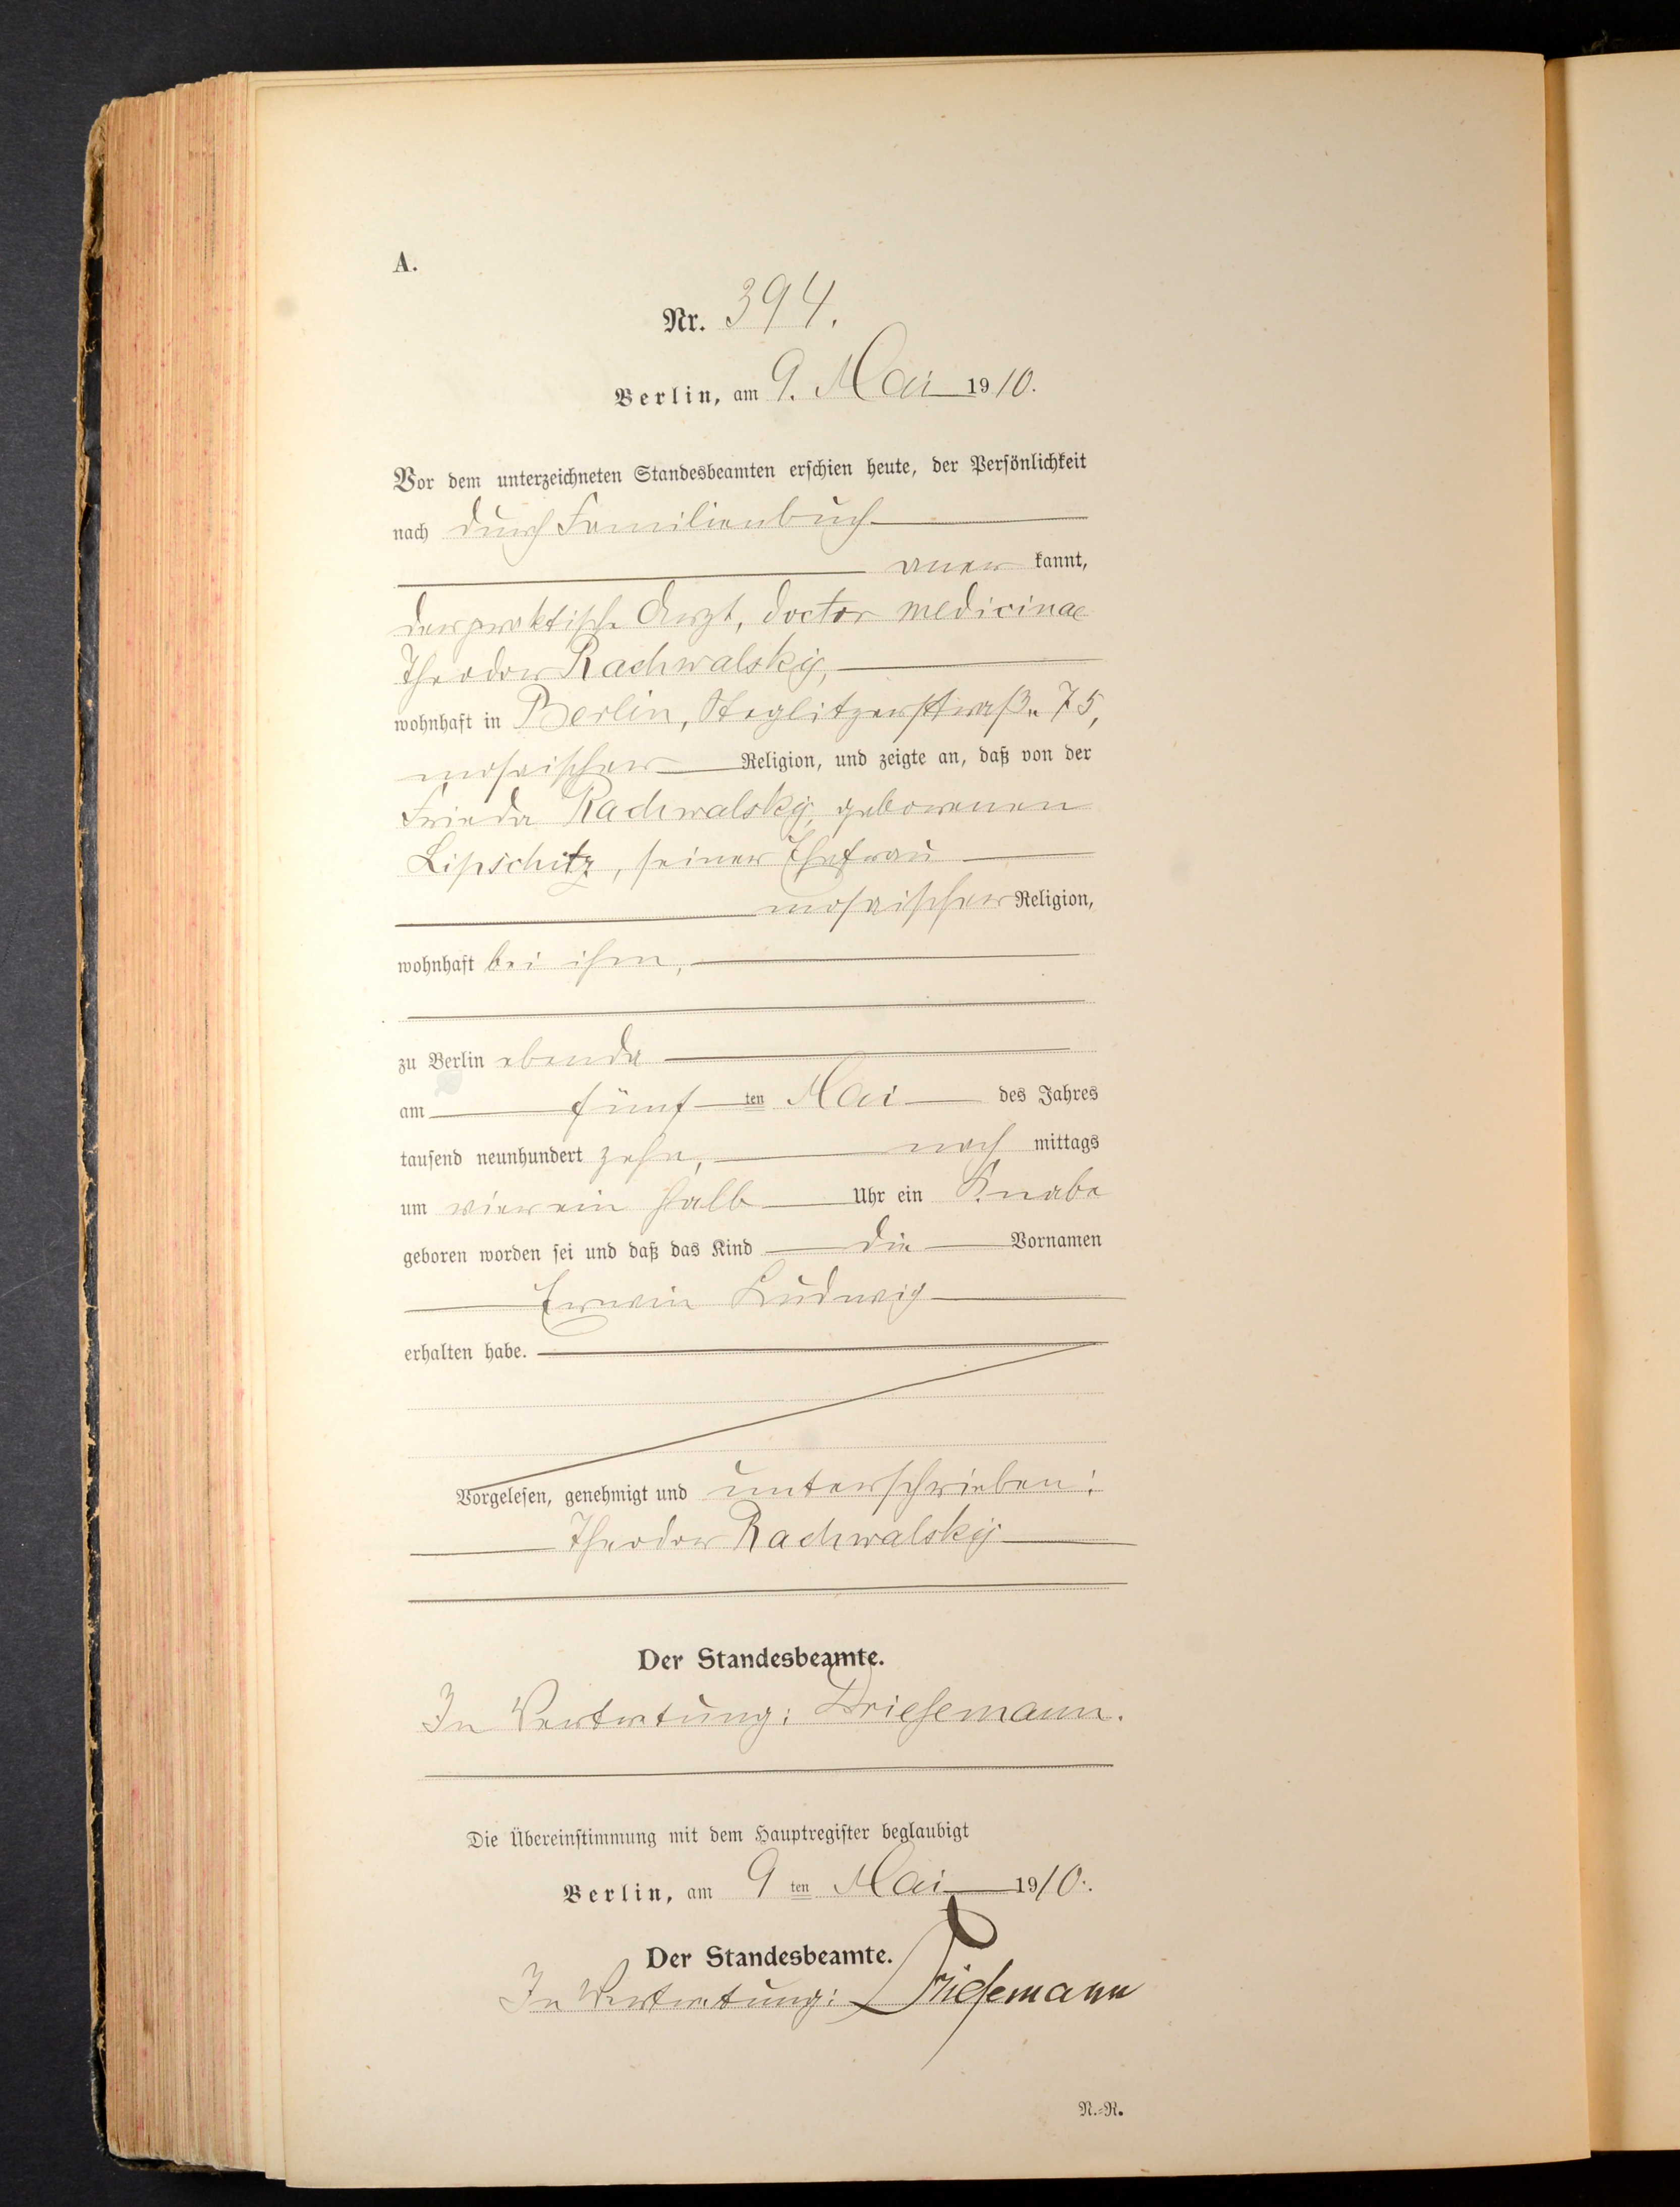 A.
Nr. 394.
Berlin, am 9. Mai 1910.
Vor dem unterzeichneten Standesbeamten erschien heute, der Persönlichkeit
nach durch Familienbuch
aner kannt,
der praktische Arzt, doctor medicinae
Theodor Rachwalsky,
wohnhaft in Berlin, Steglitzerstraße 75,
mosaischer Religion, und zeigte an, daß von der
Frieda Rachwalsky, geborenen
Lipschitz, seiner Ehefrau
mosaischer Religion,
wohnhaft bei ihm,
zu Berlin ebenda
am fünf ten Mai des Jahres
tausend neunhundert zehn, nach mittags
um vier ein halb Uhr ein Knabe
geboren worden sei und daß das Kind die Vornamen
Erwin Ludwig
erhalten habe.
Vorgelesen, genehmigt und unterschrieben:
Theodor Rachwalsky
Der Standesbeamte.
In Vertretung: Driesemann.
Die Übereinstimmung mit dem Hauptregister beglaubigt
Berlin, am 9 ten Mai 1910.
Der Standesbeamte.
In Vertretung: Driesemann
N.=R.